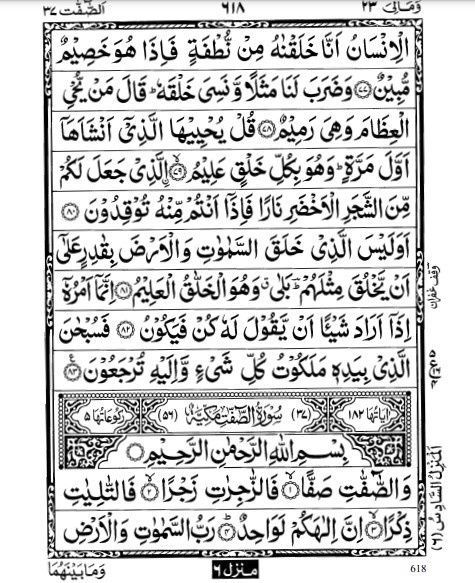 وَمَالِیَ ٢٣ ٦١٨ الصّٰٓفّٰت ٣٧
الْاِنْسَانُ اَنَّا خَلَقْنٰهُ مِنْ نُّطْفَةٍ فَاِذَا هُوَ خَصِیْمٌ
مُّبِیْنٌ ﴿٧٧﴾ وَضَرَبَ لَنَا مَثَلًا وَّنَسِیَ خَلْقَهٗ ؕ قَالَ مَنْ یُّحْیِ
الْعِظَامَ وَهِیَ رَمِیْمٌ ﴿٧٨﴾ قُلْ یُحْیِیْهَا الَّذِیْۤ اَنْشَاَهَاۤ
اَوَّلَ مَرَّةٍ ؕ وَهُوَ بِكُلِّ خَلْقٍ عَلِیْمُ ﴿٧٩﴾ اۨلَّذِیْ جَعَلَ لَكُمْ
مِّنَ الشَّجَرِ الْاَخْضَرِ نَارًا فَاِذَاۤ اَنْتُمْ مِّنْهُ تُوْقِدُوْنَ ﴿٨٠﴾
اَوَلَیْسَ الَّذِیْ خَلَقَ السَّمٰوٰتِ وَالْاَرْضَ بِقٰدِرٍ عَلٰۤی
اَنْ یَّخْلُقَ مِثْلَهُمْ ؕ بَلٰی ۗ وَهُوَ الْخَلّٰقُ الْعَلِیْمُ ﴿٨١﴾ اِنَّمَاۤ اَمْرُهٗۤ
اِذَاۤ اَرَادَ شَیْـًٔا اَنْ یَّقُوْلَ لَهٗ كُنْ فَیَكُوْنُ ﴿٨٢﴾ فَسُبْحٰنَ
الَّذِیْ بِیَدِهٖ مَلَكُوْتُ كُلِّ شَیْءٍ وَّاِلَیْهِ تُرْجَعُوْنَ ﴿٨٣﴾
اٰیَاتُهَا ١٨٢ (٣٧) سُوْرَةُ الصّٰٓفّٰتِ مَكِّیَّةٌ (٥٦) رُكُوْعَاتُهَا ٥
بِسْمِ اللّٰهِ الرَّحْمٰنِ الرَّحِیْمِ
وَالصّٰٓفّٰتِ صَفًّا ﴿١﴾ فَالزّٰجِرٰتِ زَجْرًا ﴿٢﴾ فَالتّٰلِیٰتِ
ذِكْرًا ﴿٣﴾ اِنَّ اِلٰهَكُمْ لَوَاحِدٌ ﴿٤﴾ رَبُّ السَّمٰوٰتِ وَالْاَرْضِ
وقف غفران
المنزل السادس (٦)
وَمَا بَیْنَهُمَا منزل ٦ 618